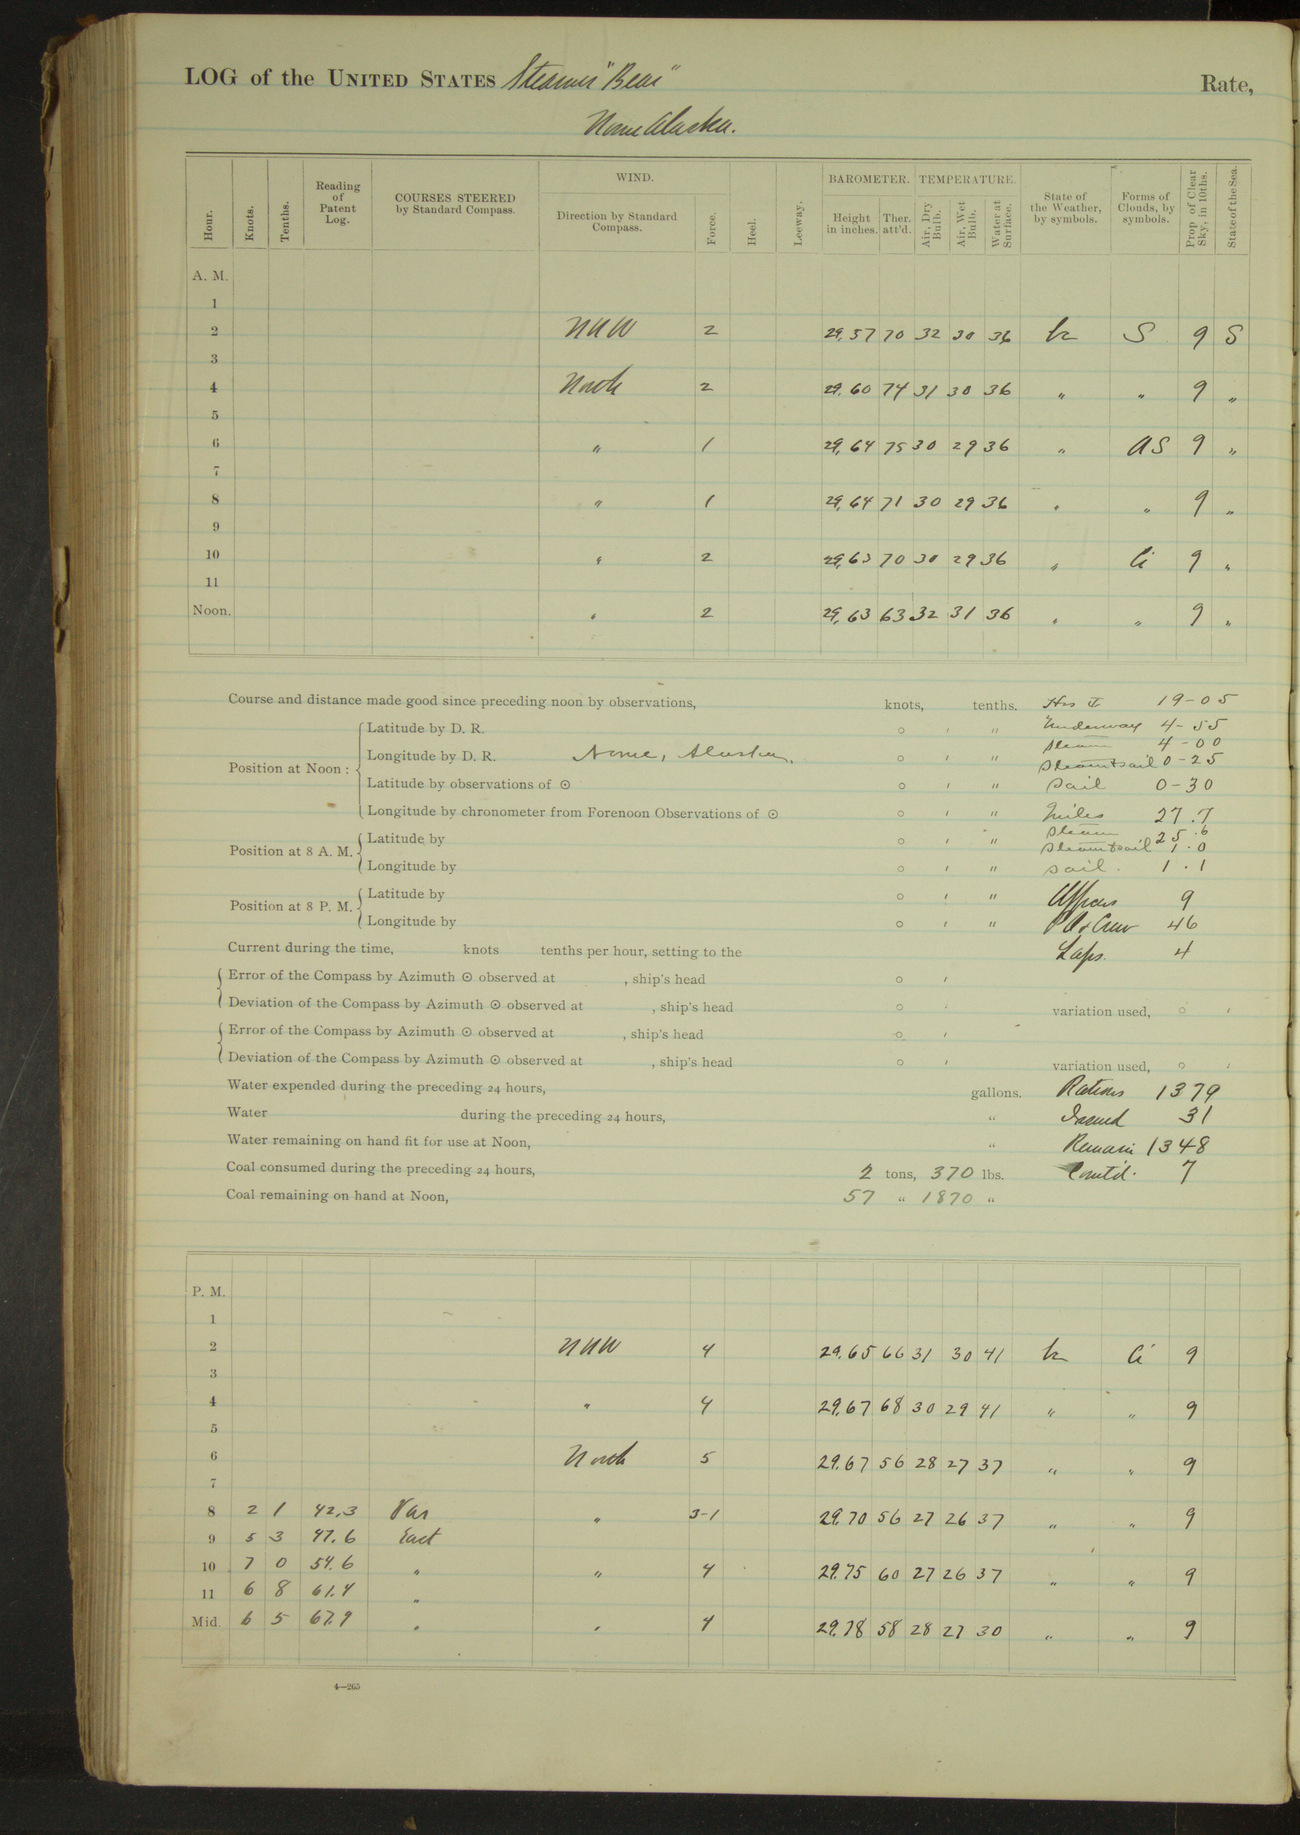 LOG of the UNITED STATES Steamer "Bear" Rate,
Nome Alaska.
Hour. Knots. Tenths. Reading of Patent Log. COURSES STEERED by Standard Compass. WIND. Direction by Standard Compass. Force. Heel. Leeway. BAROMETER. Height in inches. Ther. att'd. TEMPERATURE. Air, Dry Bulb. Air, Wet Bulb. Water at Surface. State of the Weather, by symbols. Forms of Clouds, by symbols. Prop. of Clear Sky, in 10ths. State of the Sea.
A. M.
1
2 NNW 2 29.57 70 32 30 36 bc S 9 S
3
4 North 2 29.60 74 31 30 36 " " 9 "
5
6 " 1 29.64 75 30 29 36 " AS 9 "
7
8 " 1 29.64 71 30 29 36 " " 9 "
9
10 " 2 29.63 70 30 29 36 " Ci 9 "
11
Noon. " 2 29.63 63 32 31 36 " " 9 "
Course and distance made good since preceding noon by observations, knots, tenths. 19-05
Position at Noon :
Latitude by D. R. ° ' " Underway 4-55
Longitude by D. R. Nome, Alaska. ° ' " Steam 4-00
Steam+sail 0-25
Latitude by observations of ☉ ° ' " Sail 0-30
Longitude by chronometer from Forenoon Observations of ☉ ° ' " Miles 27.7
Position at 8 A. M.
Steam 25.6
Latitude by ° ' " Steam+sail 1.0
Longitude by ° ' " Sail. 1.1
Position at 8 P. M.
Latitude by ° ' " Officers 9
Longitude by ° ' " P.O.+Crew 46
Current during the time, knots tenths per hour, setting to the 4
Error of the Compass by Azimuth ☉ observed at , ship's head ° '
Deviation of the Compass by Azimuth ☉ observed at , ship's head ° ' variation used, ° '
Error of the Compass by Azimuth ☉ observed at , ship's head ° '
Deviation of the Compass by Azimuth ☉ observed at , ship's head ° ' variation used, ° '
Water expended during the preceding 24 hours, gallons. Rations 1379
Water during the preceding 24 hours, " Issued 31
Water remaining on hand fit for use at Noon, " Remain 1348
Coal consumed during the preceding 24 hours, 2 tons, 370 lbs. Comtd. 7
Coal remaining on hand at Noon, 57 " 1870 "
P. M.
1
2 NNW 4 29.65 66 31 30 41 bc Ci 9
3
4 " 4 29.67 68 30 29 41 " " 9
5
6 North 5 29.67 56 28 27 37 " " 9
7
8 2 1 42.3 Var " 3-1 29.70 56 27 26 37 " " 9
9 5 3 47.6 East
10 7 0 54.6 " " 4 29.75 60 27 26 37 " " 9
11 6 8 61.4 "
Mid. 6 5 67.9 " " 4 29.78 58 28 27 30 " " 9
4—265